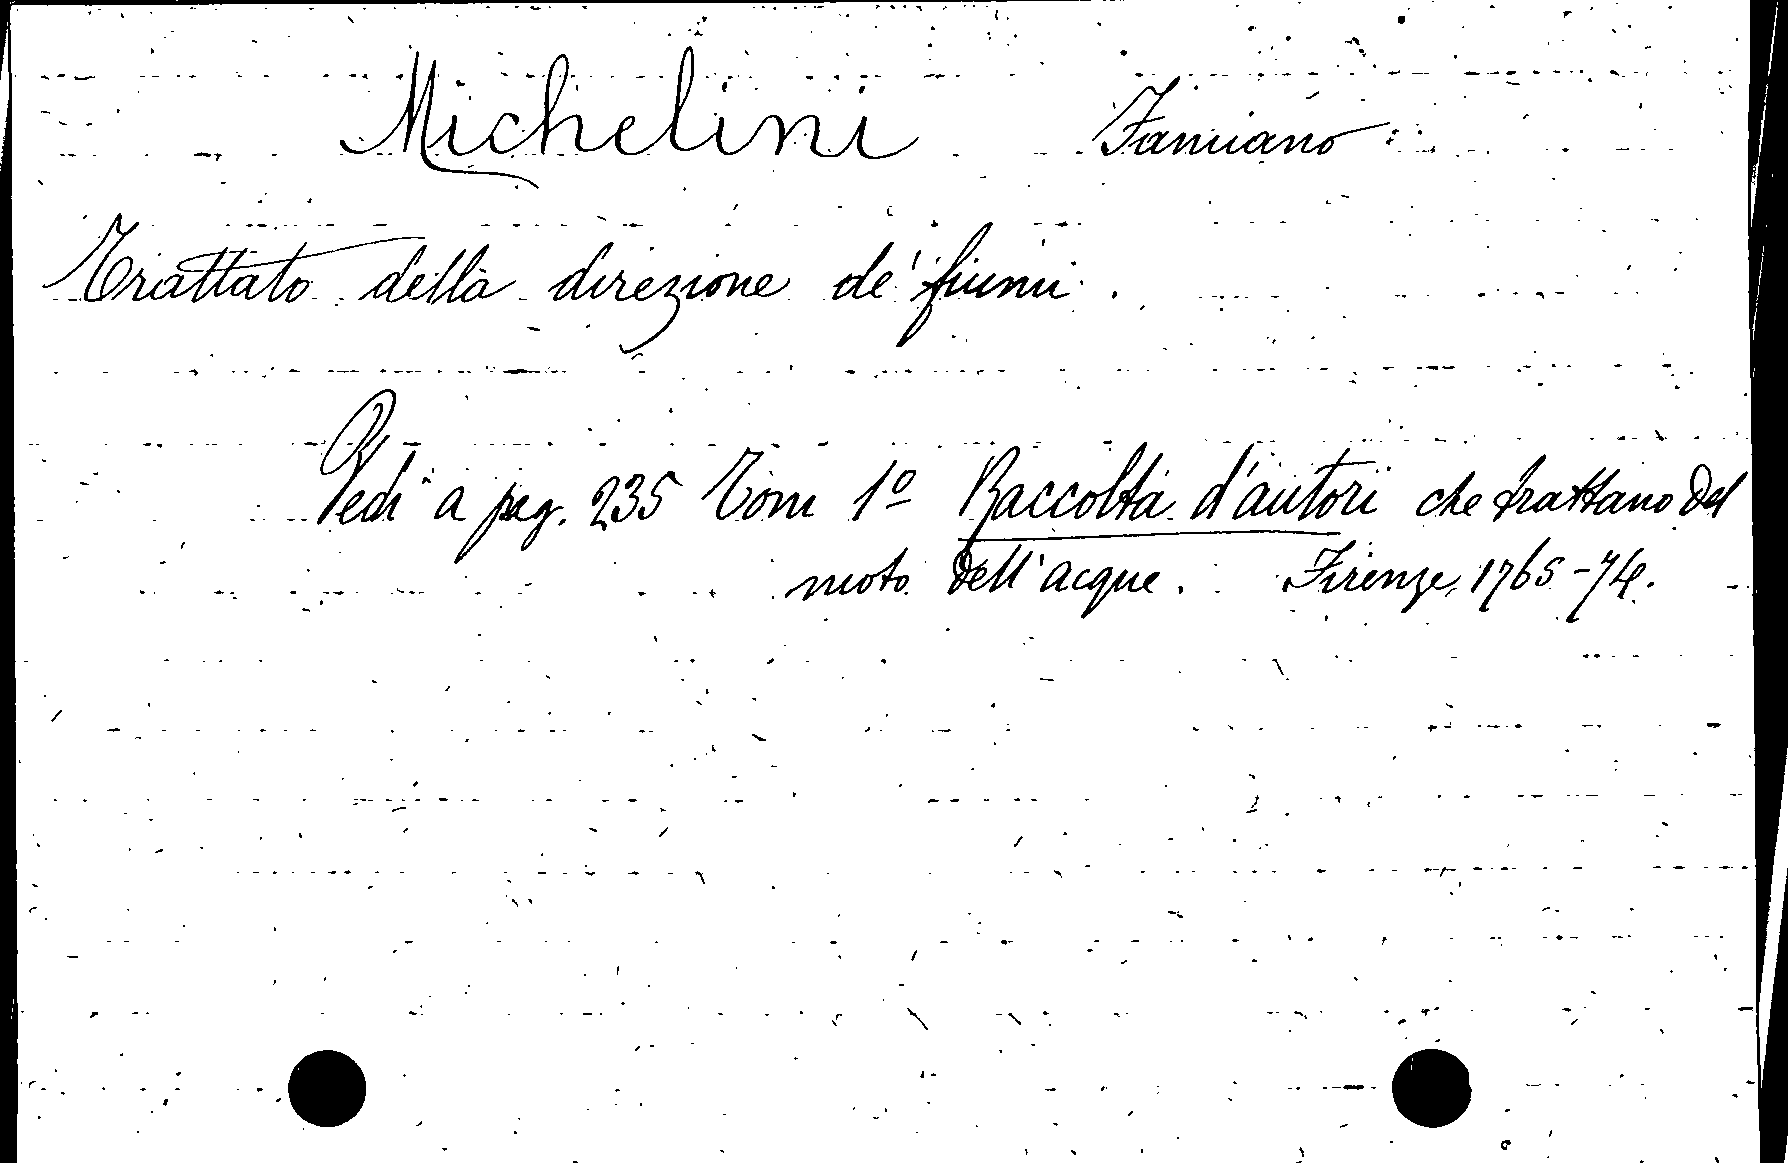 Michelini Famiano
Trattato della direzione de' fiumi.
Vedi a pag. 235 Tom 1º Raccolta d'autori che trattano del
moto dell'acque. Firenze, 1765-74.